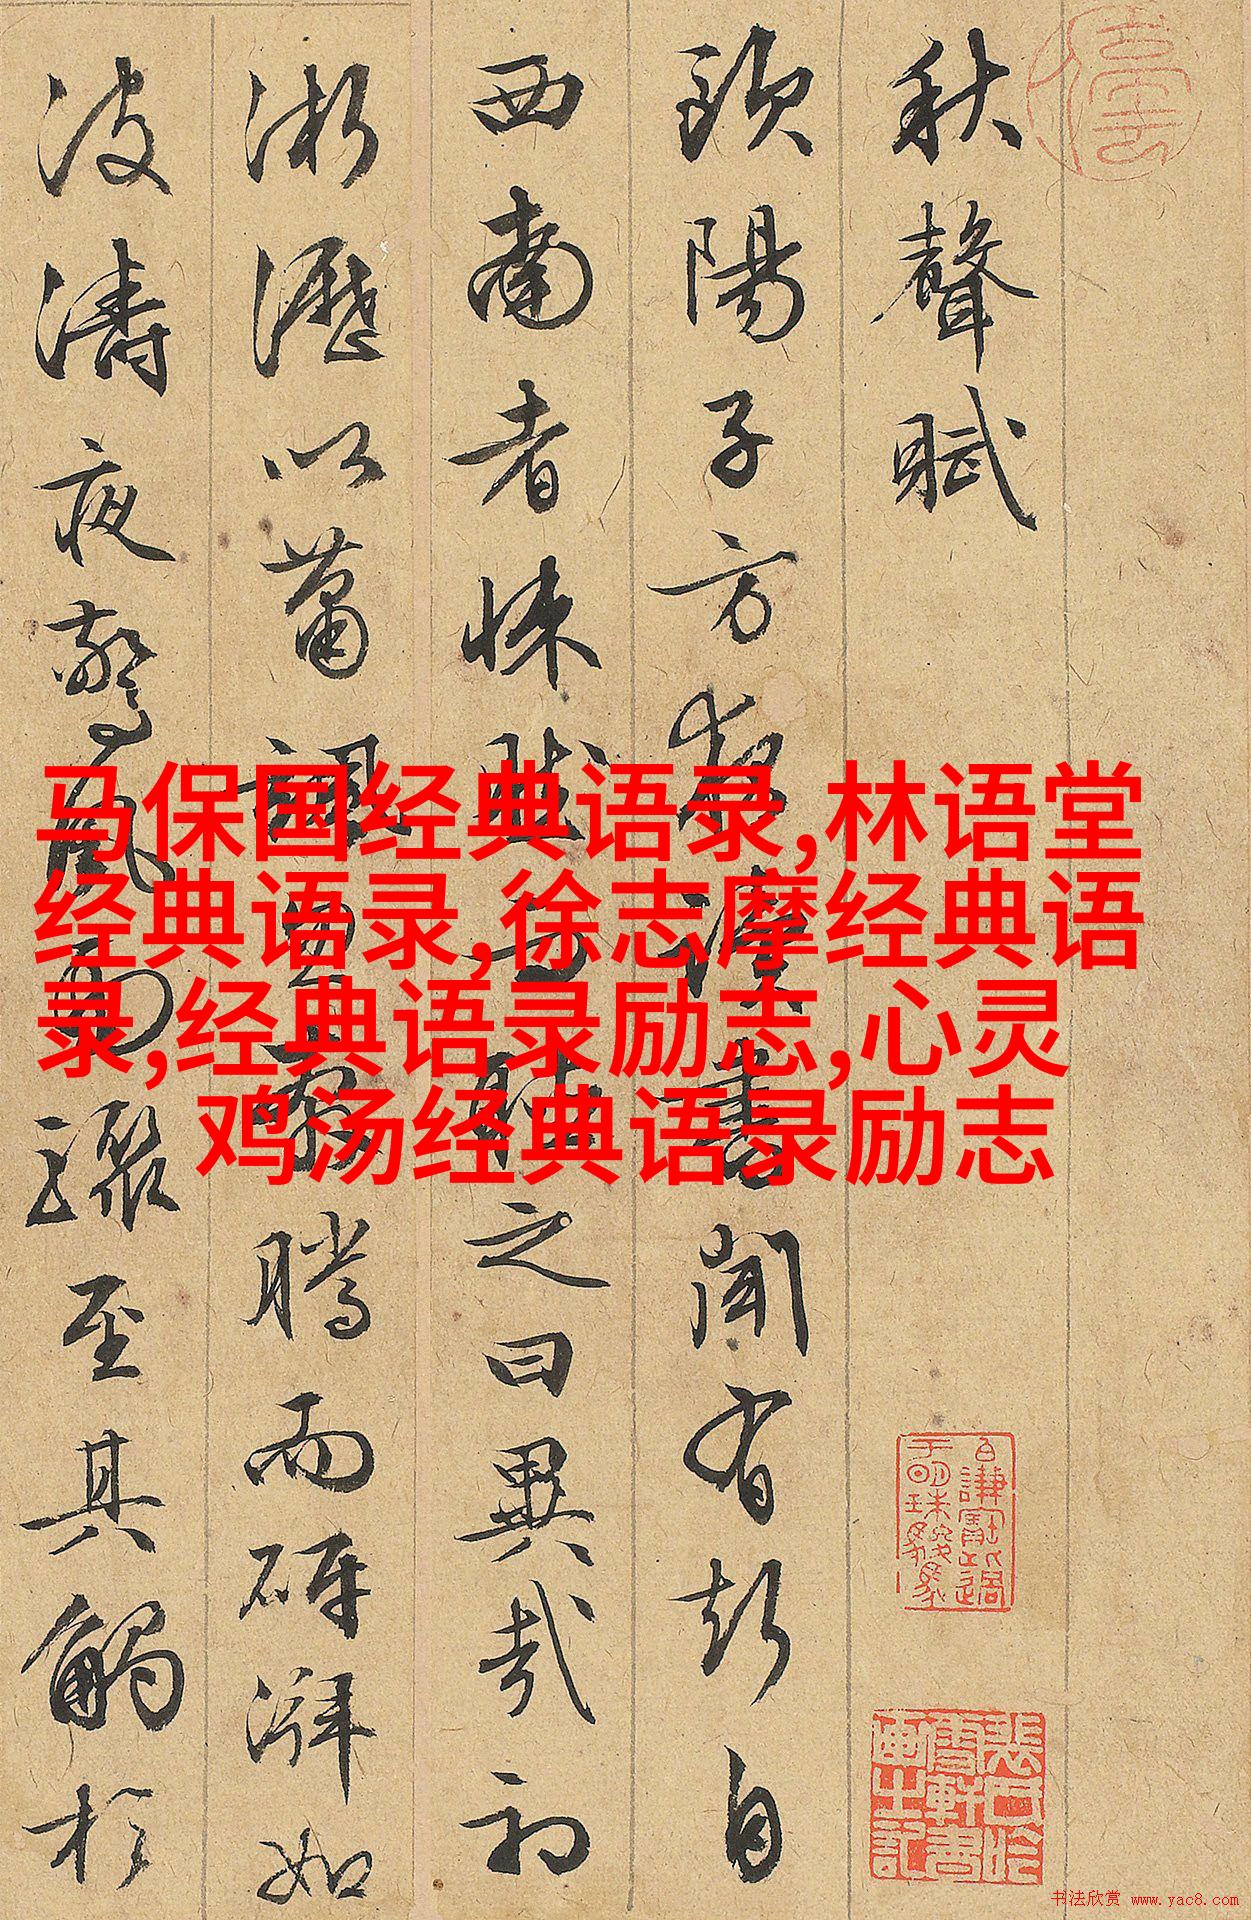 秋聲賦
歐陽子方夜讀書聞有聲自
西南者悚然而聽之曰異哉初
淅瀝以蕭颯忽奔騰而砰湃如
波濤夜驚風雨驟至其觸於
马保国经典语录,林语堂
经典语录,徐志摩经典语
录,经典语录励志,心灵
鸡汤经典语录励志
书法欣赏 www.yac8.com